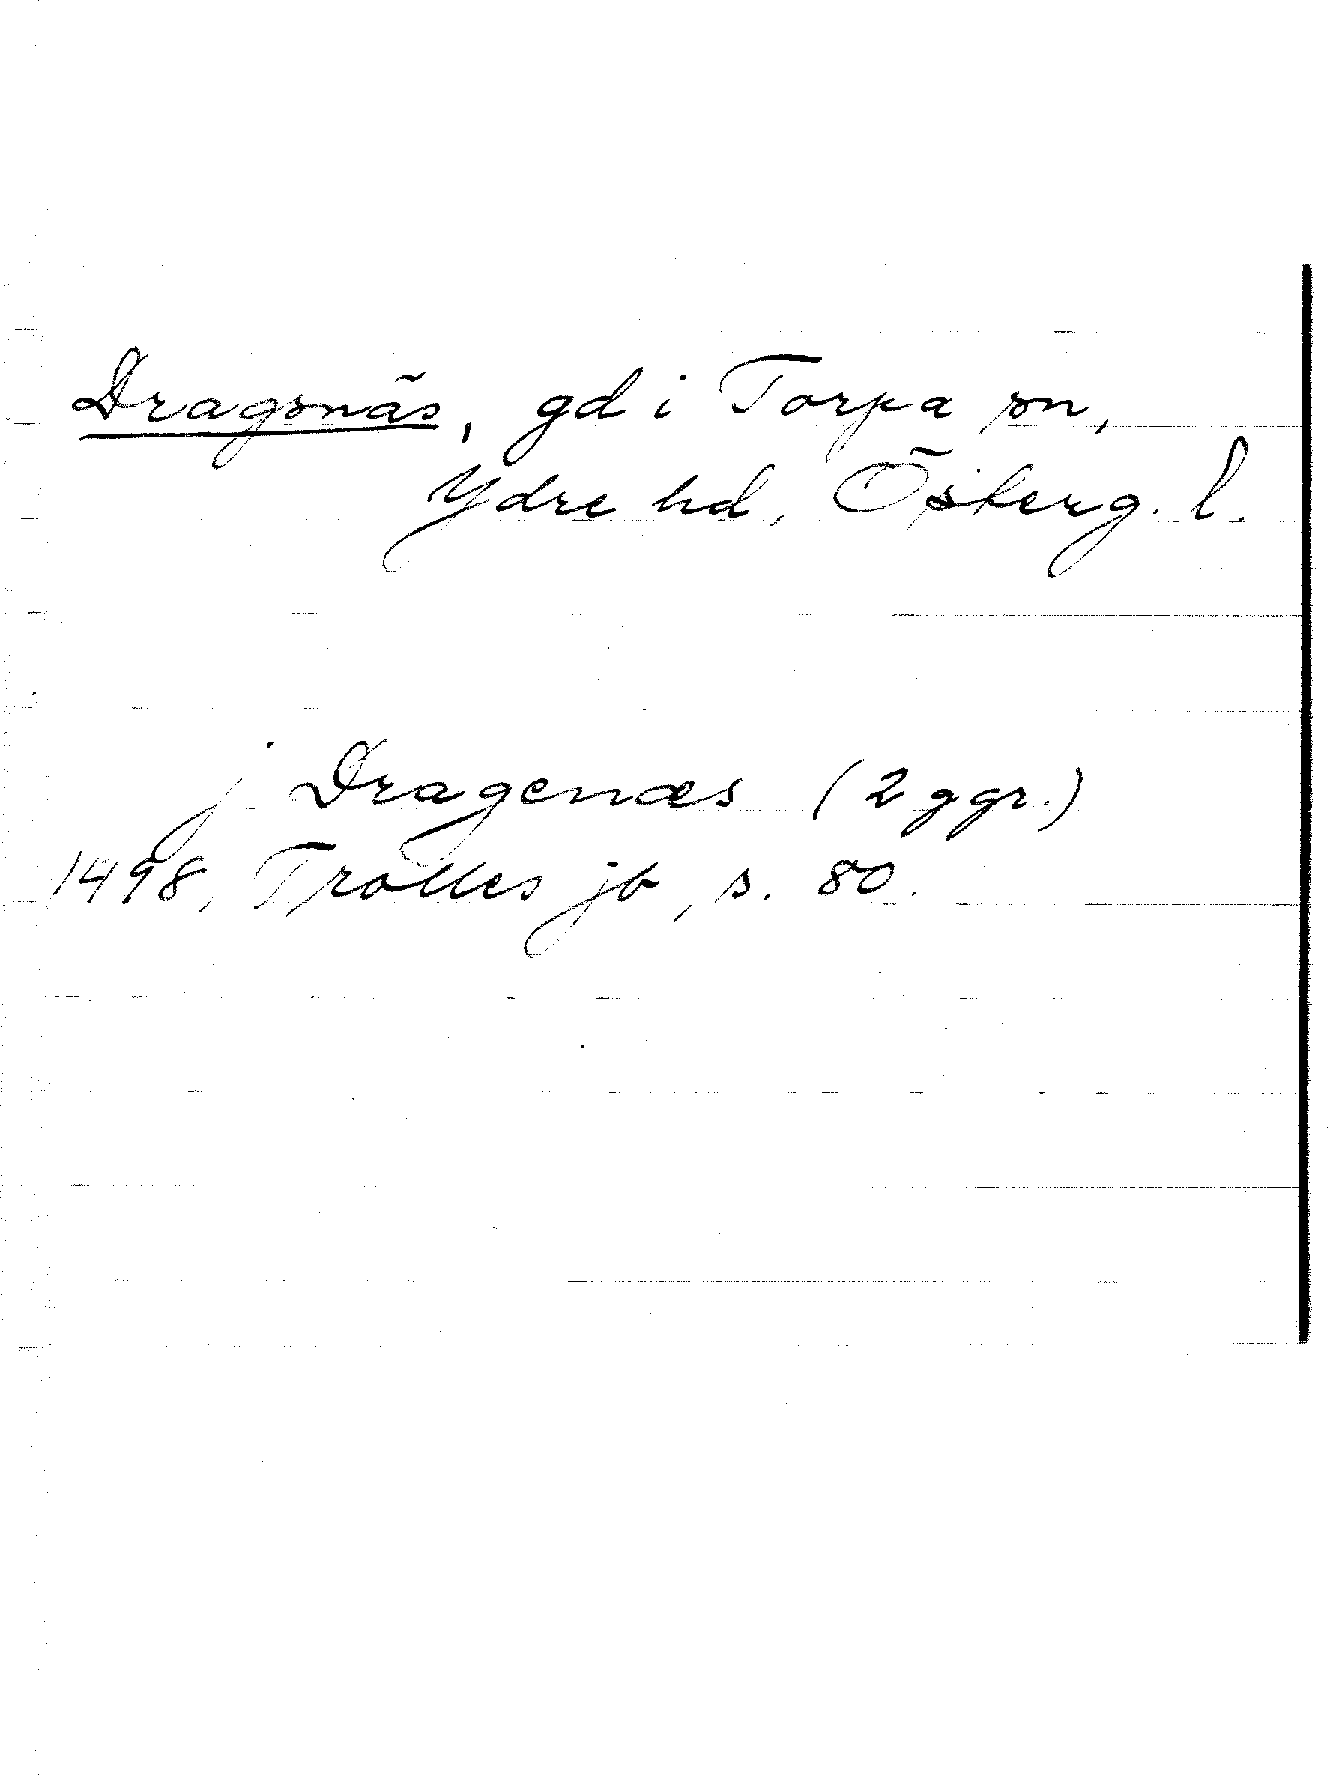 Dragsnäs, gd i Torpa sn,
Ydre hd, Österg. l.
j Dragenæs (2 ggr.)
1498, Trolles jb, s. 80.